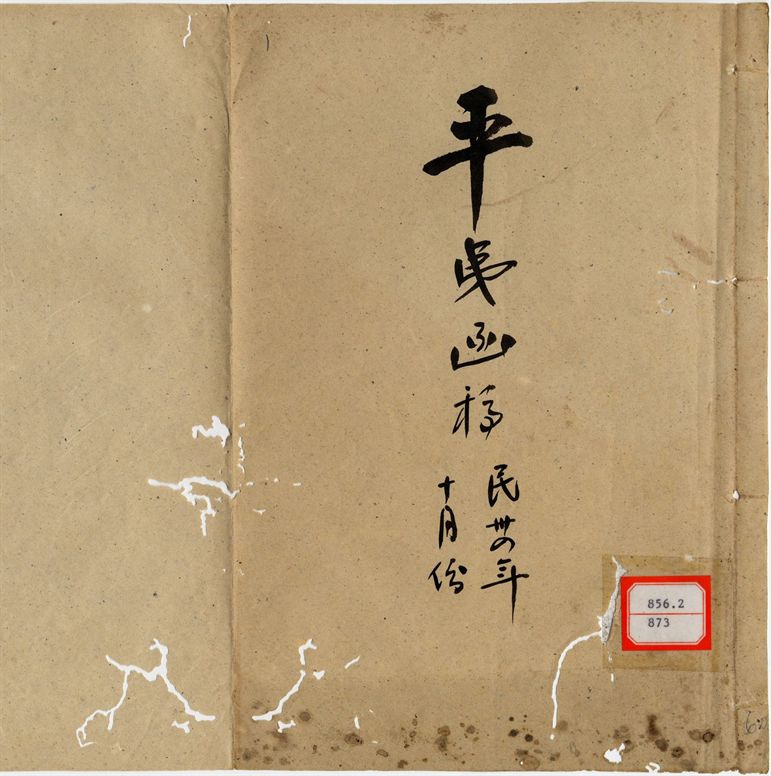 平叟函稿
民卅四年
十月份
856.2
873